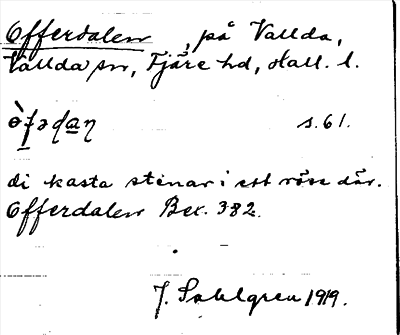 Offerdalen, på Vallda,
Vallda sn, Fjäre hd, Hall. l.
s. 61.
di kasta stenar i ett röse där.
Offerdalen Bex. 382.
J. Sahlgren 1919.